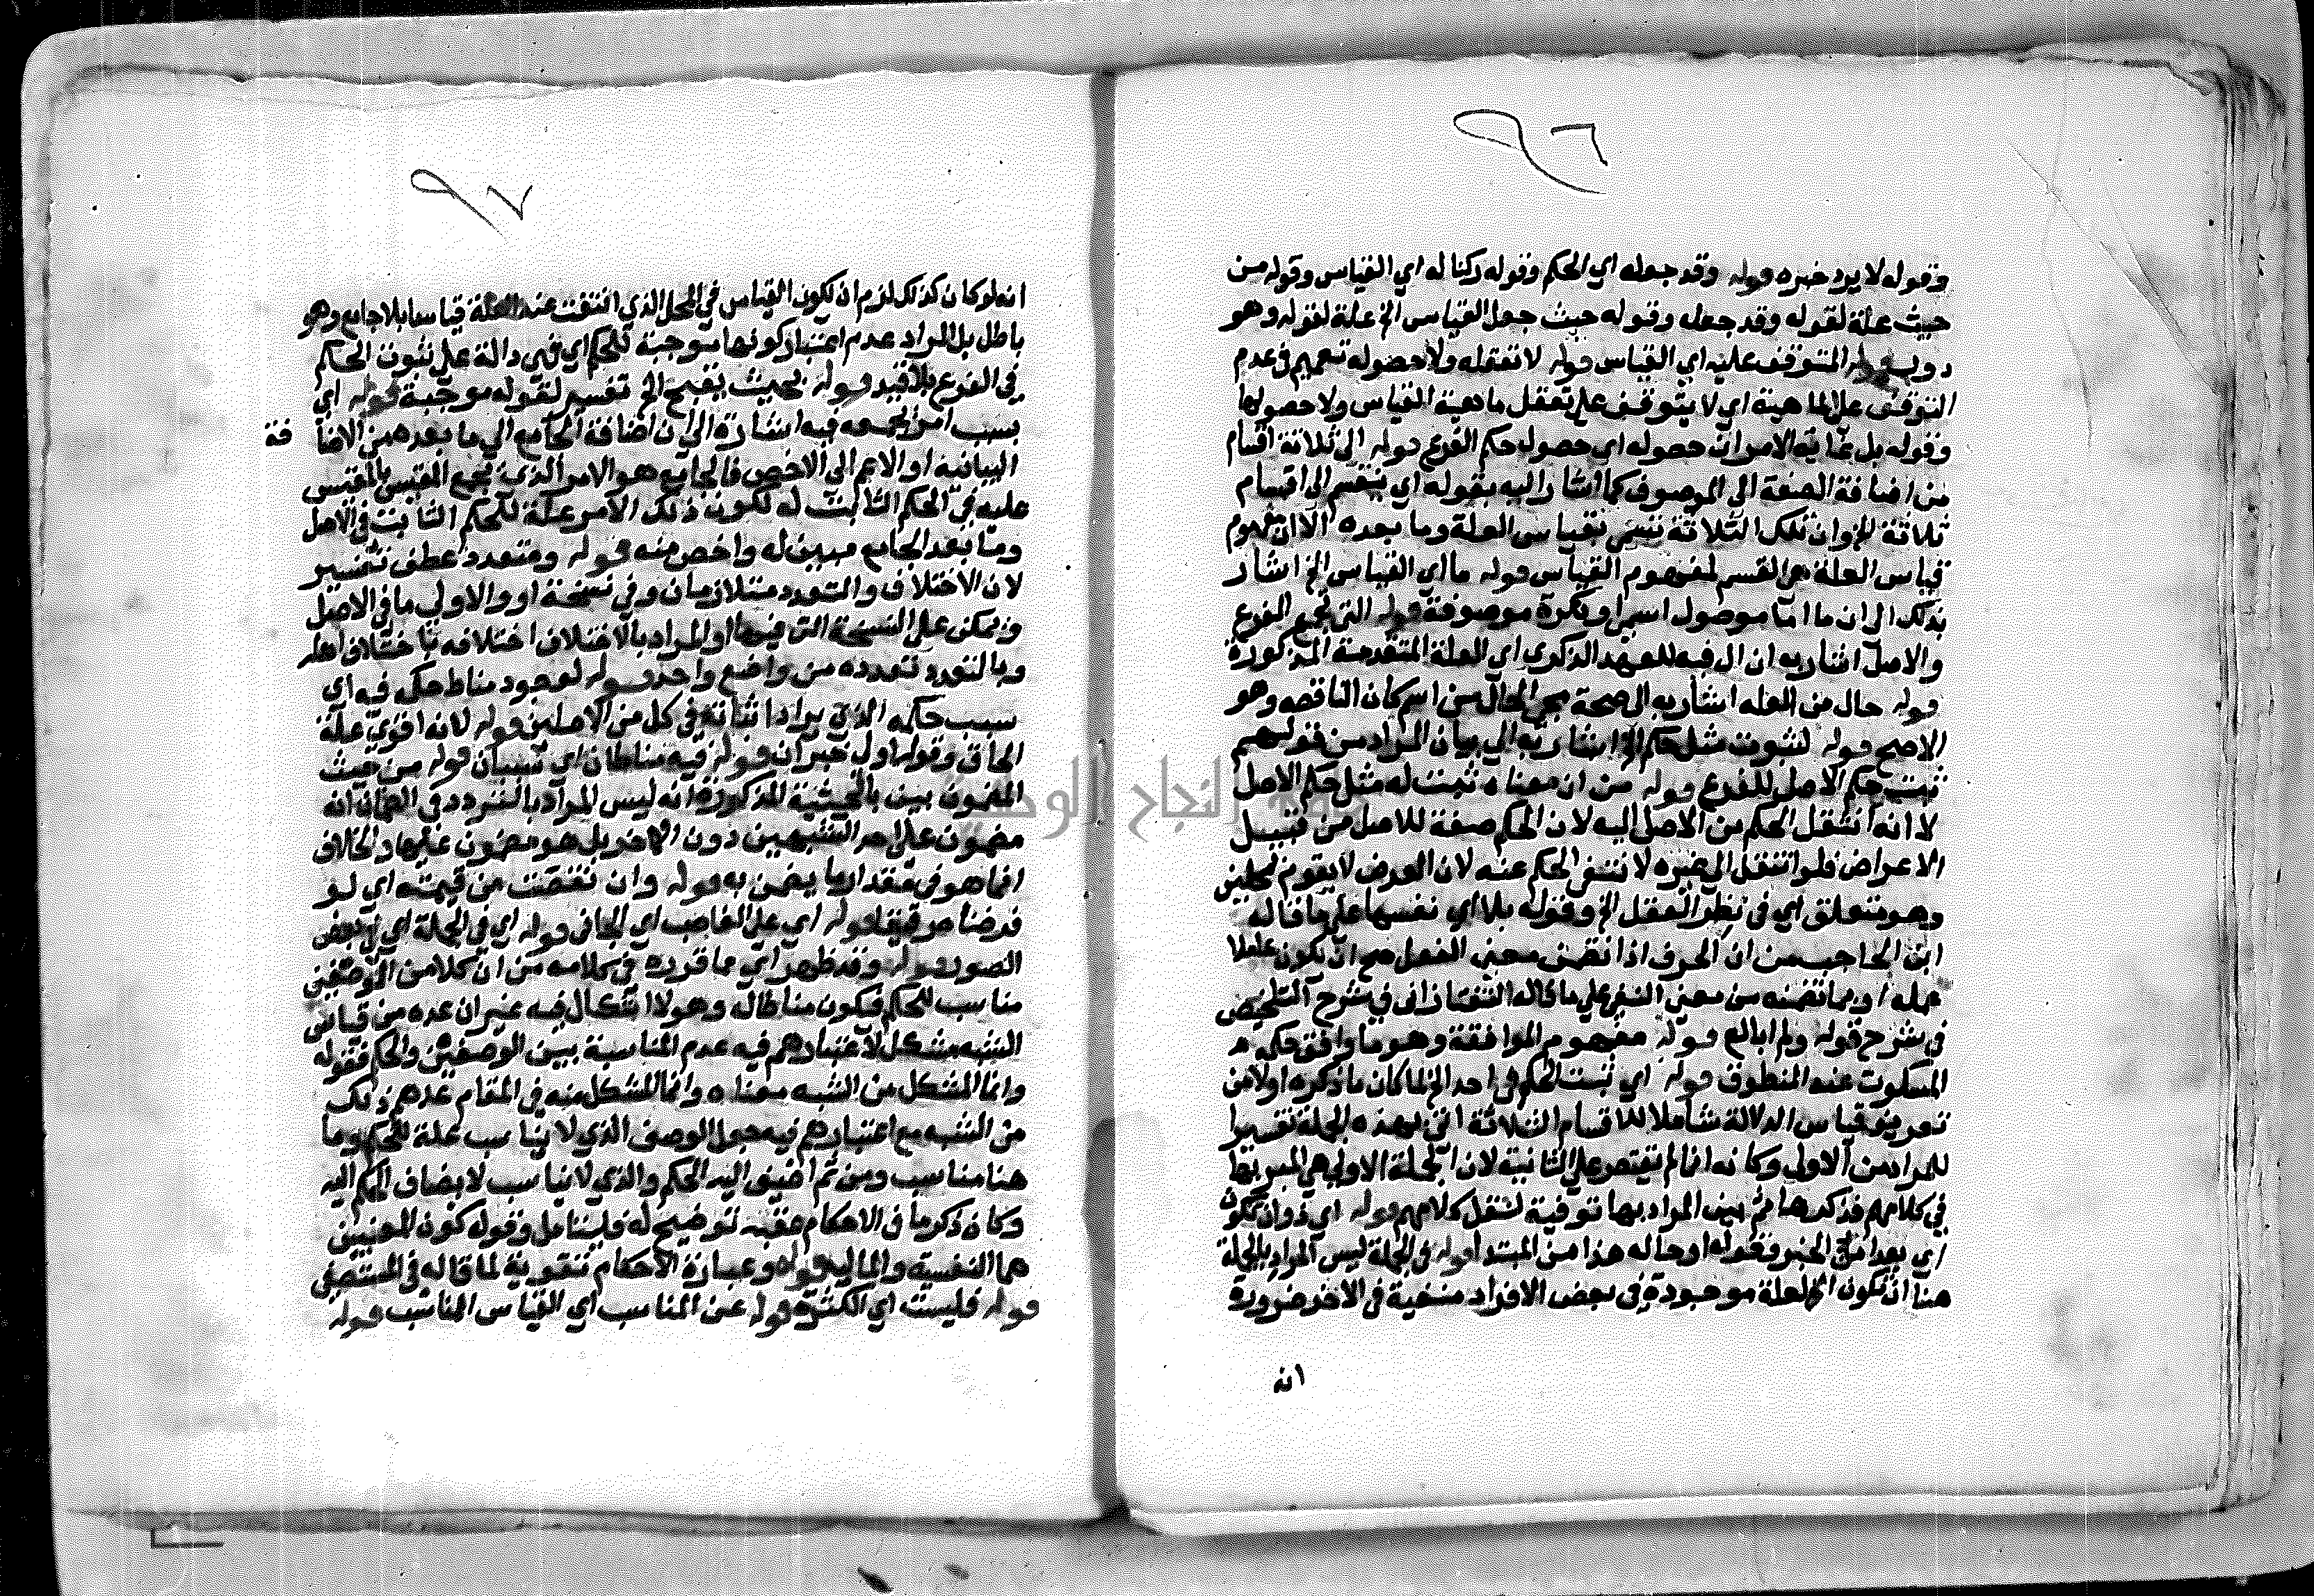 ٩٦
وقوله لا يرد خبره قوله وقد جعله اي الحكم وقوله ركنا له اي القياس وقوله من
حيث علة لقوله وقد جعله وقوله حيث جعل القياس الخ علة لقوله وهو
المتوقف عليه اي القياس قوله لا تعقله ولا حصوله تعميم في عدم
التوقف على الماهية اي لا يتوقف على تعقل ماهية القياس ولا حصولها
وقوله بل غاية الامر ان حصوله اي حصول حكم الفرع قوله الى ثلاثة اقسام
من اضافة الصفة الى الموصوف كما اشار اليه بقوله اي ينقسم الى اقسام
ثلاثة الخ وان تلك الثلاثة تسمى بقياس العلة وما بعده الا ان مفهوم
قياس العلة هي القسم لمفهوم القياس قوله ما اي القياس الخ اشار
بذلك الى ان ما اما موصول اسمي او نكرة موصوفة قوله التي تجمع الفرع
والاصل اشار به ان ال فيه للعهد الذكري اي العلة المتقدمة المذكورة
قوله حال من العلة اشار به الى صحة مجي الحال من اسم كان الناقصه وهو
الاصح قوله لثبوت مثل حكم الخ اشار به الى بيان المراد من قولهم
ثبت حكم الاصل للفرع قوله من ان معناه ثبت له مثل حكم الاصل
لا انه انتقل الحكم من الاصل اليه لان الحكم صفة للاصل من قبيل
الاعراض فلو انتقل الى غيره لانتفى الحكم عنه لان العرض لا يقوم بمحلين
وهو متعلق اي في نظر العقل الخ وقوله بلا اي نفسها على ما قاله
ابن الحاجب من ان الحرف اذا تضمن معنى الفعل صح ان يكون عاملا
عمله او مما تضمنه من معنى النفي على ما قاله التفتازاني في شرح التلخيص
في شرح قوله ولم ابالغ قوله مفهوم الموافقة وهو ما وافق حكمه
المسكوت عنه المنطوق قوله اي يثبت الحكم في احد الخ لما كان ما ذكره اولا من
تعريف قياس الدلالة شاملا للاقسام الثلاثة اتى بهذه الجملة تفسيرا
للمراد من الاولى وكانه انما لم يقتصر على الثانية لان الجملة الاولى هي المعبر بها
في كلامهم فذكرها ثم بين المراد بها توفية لنقل كلامهم قوله اي ذو ان تكون
اي بعد الخبر وقوله او حاله هذا من المبتدا قوله في الجملة ليس المراد بالجملة
هنا ان تكون العلة موجودة في بعض الافراد منفية في الاخر ضرورة
انه
٩٧
انه لو كان كذلك لزم ان يكون القياس في المحل الذي انتفت عنه العلة قياسا بلا جامع وهو
باطل بل المراد عدم اعتبار كونها موجبة للحكم اي فهي دالة على ثبوت الحكم
في الفرع بلا قيد قوله بحيث يقبح الخ تفسير لقوله موجبة قوله اي
بسبب امر يجمعه فيه اشارة الى ان اضافة الجامع الى ما بعده من الاضا فة
البيانية او الاعم الى الاخص فالجامع هو الامر الذي يجمع المقيس بالمقيس
عليه في الحكم الثابت له لكون ذلك الامر علة للحكم الثابت في الاصل
وما بعد الجامع مبين له واخص منه قوله ومتعدد عطف تفسير
لان الاختلاف والتعدد متلازمان وفي نسخة او والاولى ما في الاصل
ويمكن على النسخة التي فيها او المراد بالاختلاف اختلافه باختلاف اهله
وبالتعدد تعدده من واضع واحد قوله لوجود مناط حكمه فيه اي
سبب حكمه الذي يراد اثباته في كل من الاصلين قوله لانه اقوى علة
الحاق وقوله اول خبر ان قوله فيه مناطان اي شبهان قوله من حيث
الضمان بين بالحيثية المذكورة انه ليس المراد بالتردد في الضمان انه
مضمون على احد الشبهين دون الاخر بل هو مضمون عليهما والخلاف
انما هو في مقدار ما يضمن به قوله وان نقصت من قيمته اي لو
فرضناه رقيقا قوله اي على الغاصب اي الجاني قوله اي في الجملة اي في بعض
الصور قوله وقد ظهر اي مما قرره في كلامه من ان كلا من الوصفين
مناسب للحكم فيكون مناطا له وهو لا اشكال فيه غير ان عده من قياس
الشبه مشكل لاعتبارهم فيه عدم المناسبة بين الوصفين والحكم فقوله
وانما المشكل من الشبه معناه وانما المشكل منه في المقام عدهم ذلك
من الشبه مع اعتبارهم فيه جعل الوصف الذي لا يناسب علة للحكم وما
هنا مناسب ومن ثم اضيف اليه الحكم والذي لا يناسب لا يضاف الحكم اليه
وكان ذكر ما في الاحكام عقبه توضيح له فليتامل وقوله كون المعنيين
هما النفسية والمالية قوله وعبارة الاحكام تقوية لما قاله في المستصفى
قوله فليست اي الكثرة قوله عن المناسب اي القياس المناسب قوله